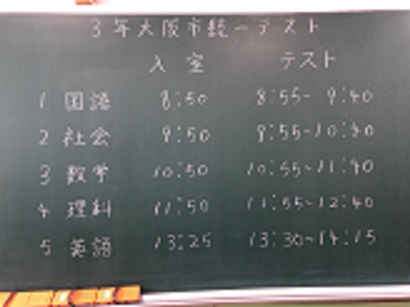 3年大阪市統一テスト
入室 テスト
1 国語 8:50 8:55~9:40
2 社会 9:50 9:55~10:40
3 数学 10:50 10:55~11:40
4 理科 11:50 11:55~12:40
5 英語 13:25 13:30~14:15